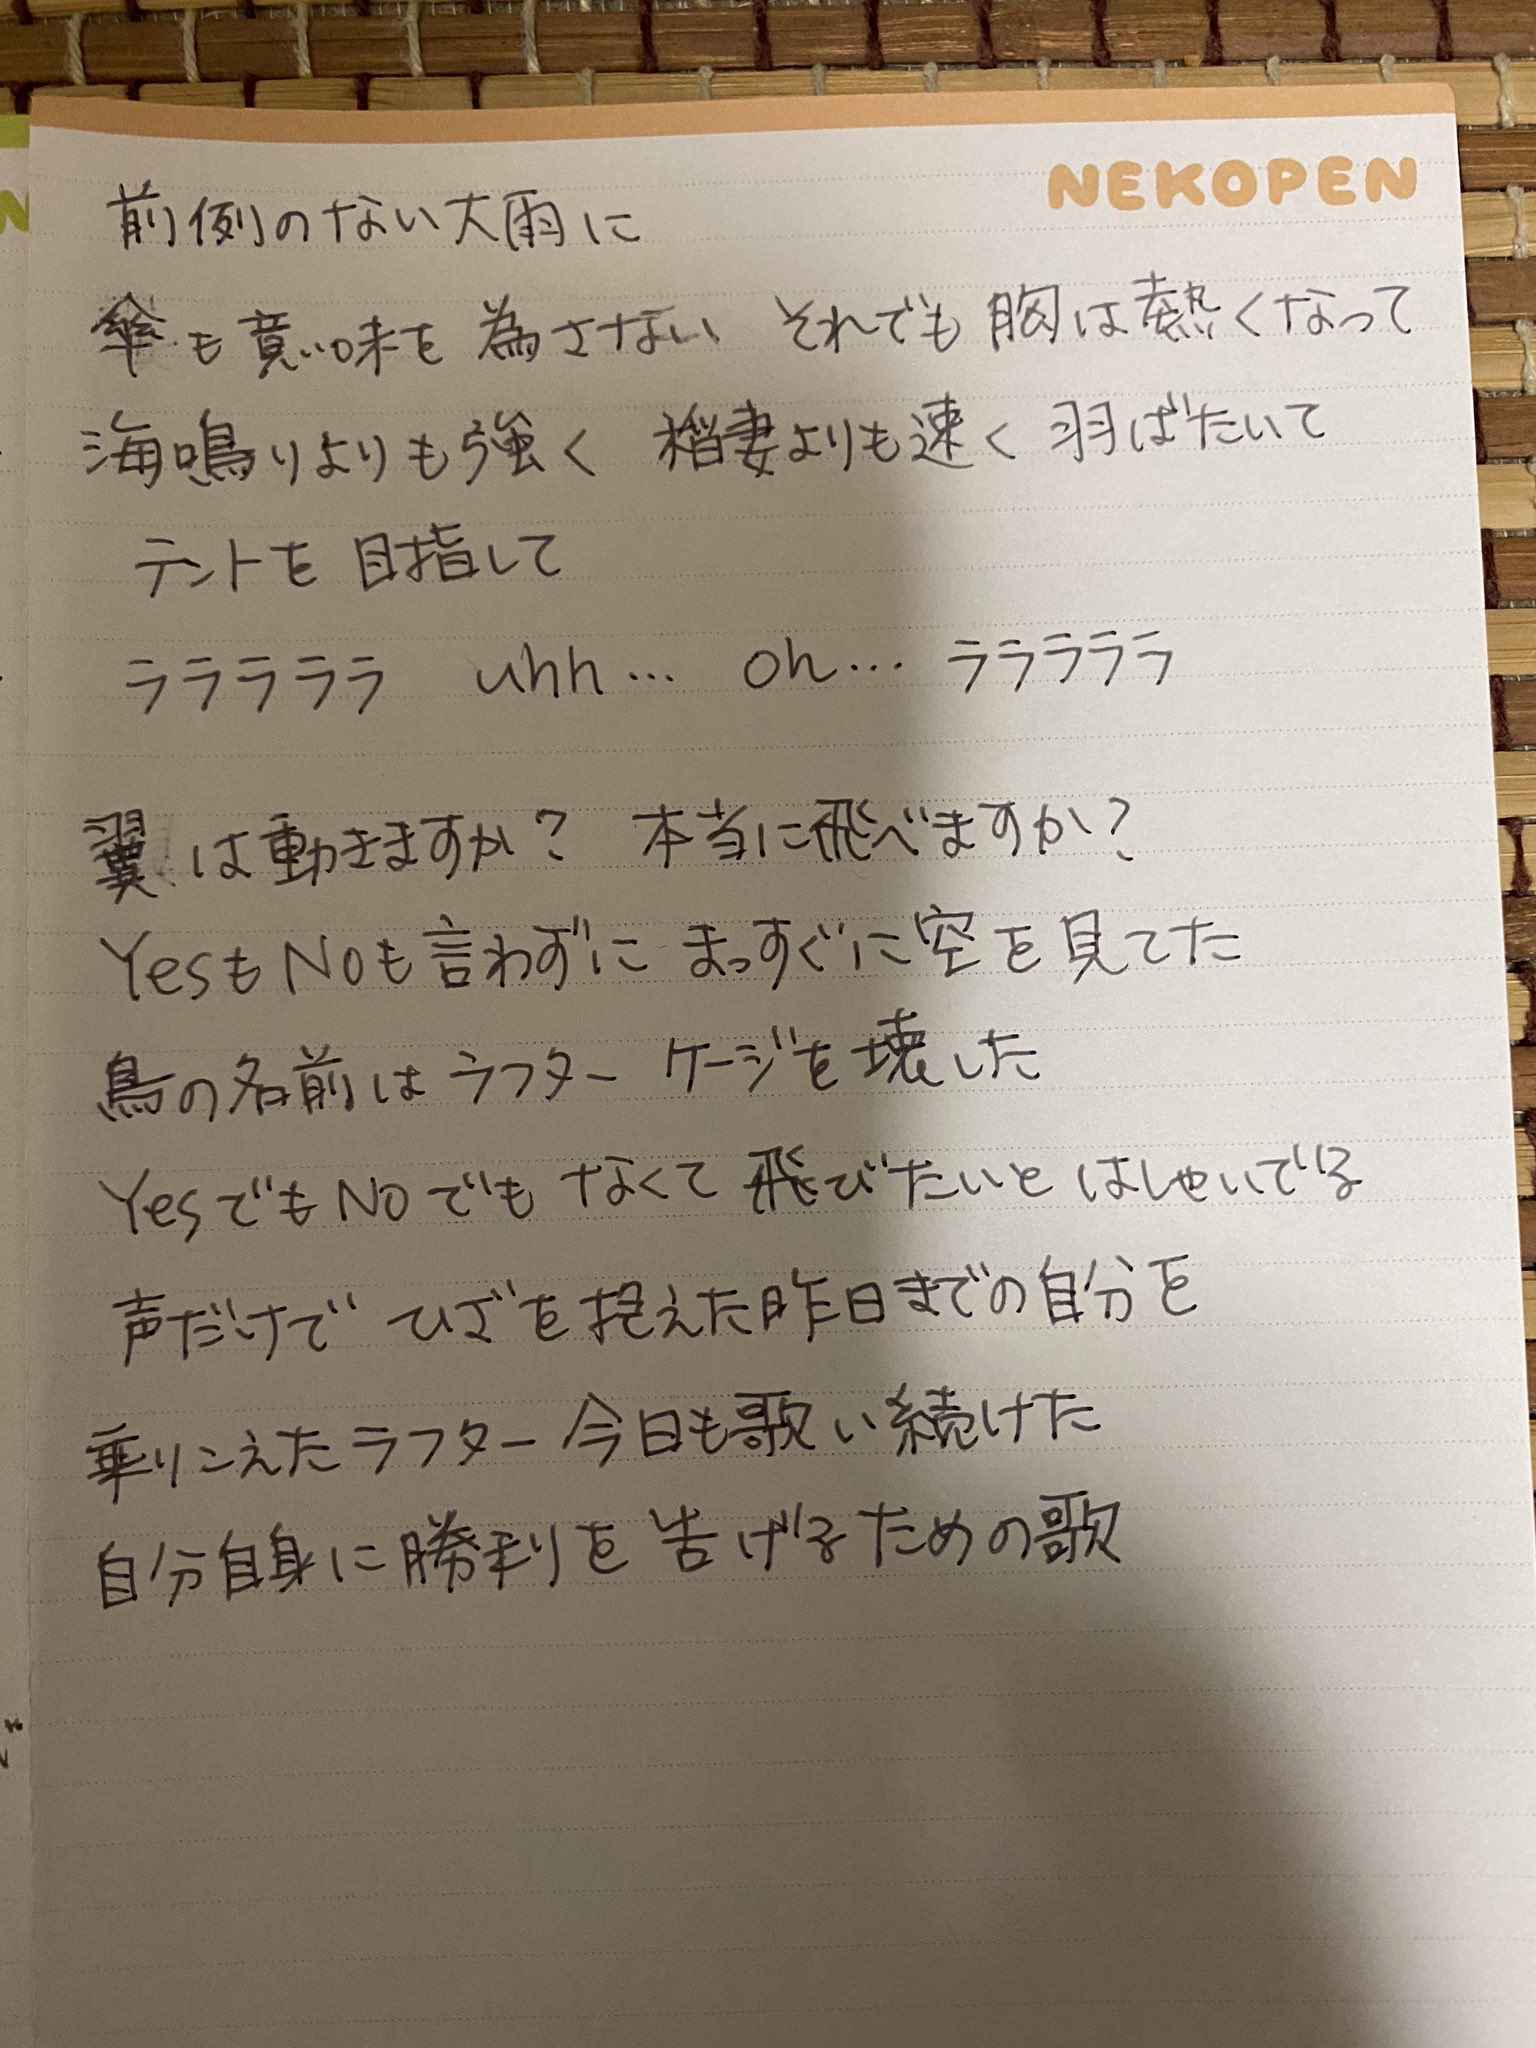 NEKOPEN
前例のない大雨に
傘も意味を為さない それでも胸は熱くなって
海鳴りよりも強く 稲妻よりも速く 羽ばたいて
テントを目指して
ラララララ uhh… oh… ラララララ
翼は動きますか? 本当に飛べますか?
YesもNoも言わずに まっすぐに空を見てた
鳥の名前はラフター ケージを壊した
YesでもNoでもなくて 飛びたいと はしゃいでる
声だけで ひざを抱えた昨日までの自分を
乗りこえたラフター 今日も歌い続けた
自分自身に勝利を告げるための歌